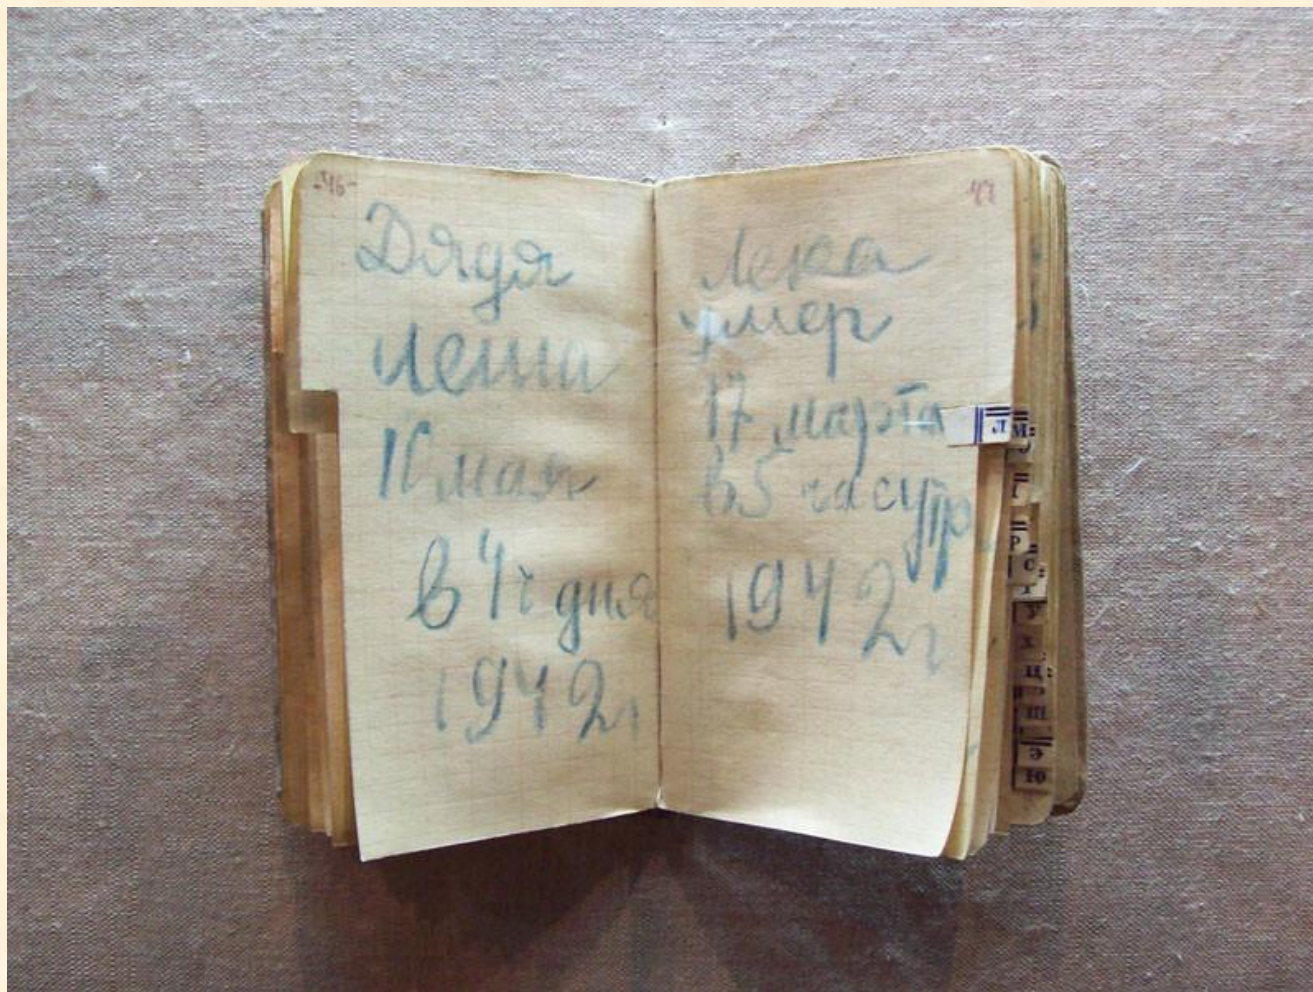 -46-
Дядя
Леша
10 мая
в 4 ч дня
1942 г
47
Лека
умер
17 марта
в 5 час утр
1942 г
Л
М
Р
С
Т
У
Х
Ц
Щ
Э
Ю